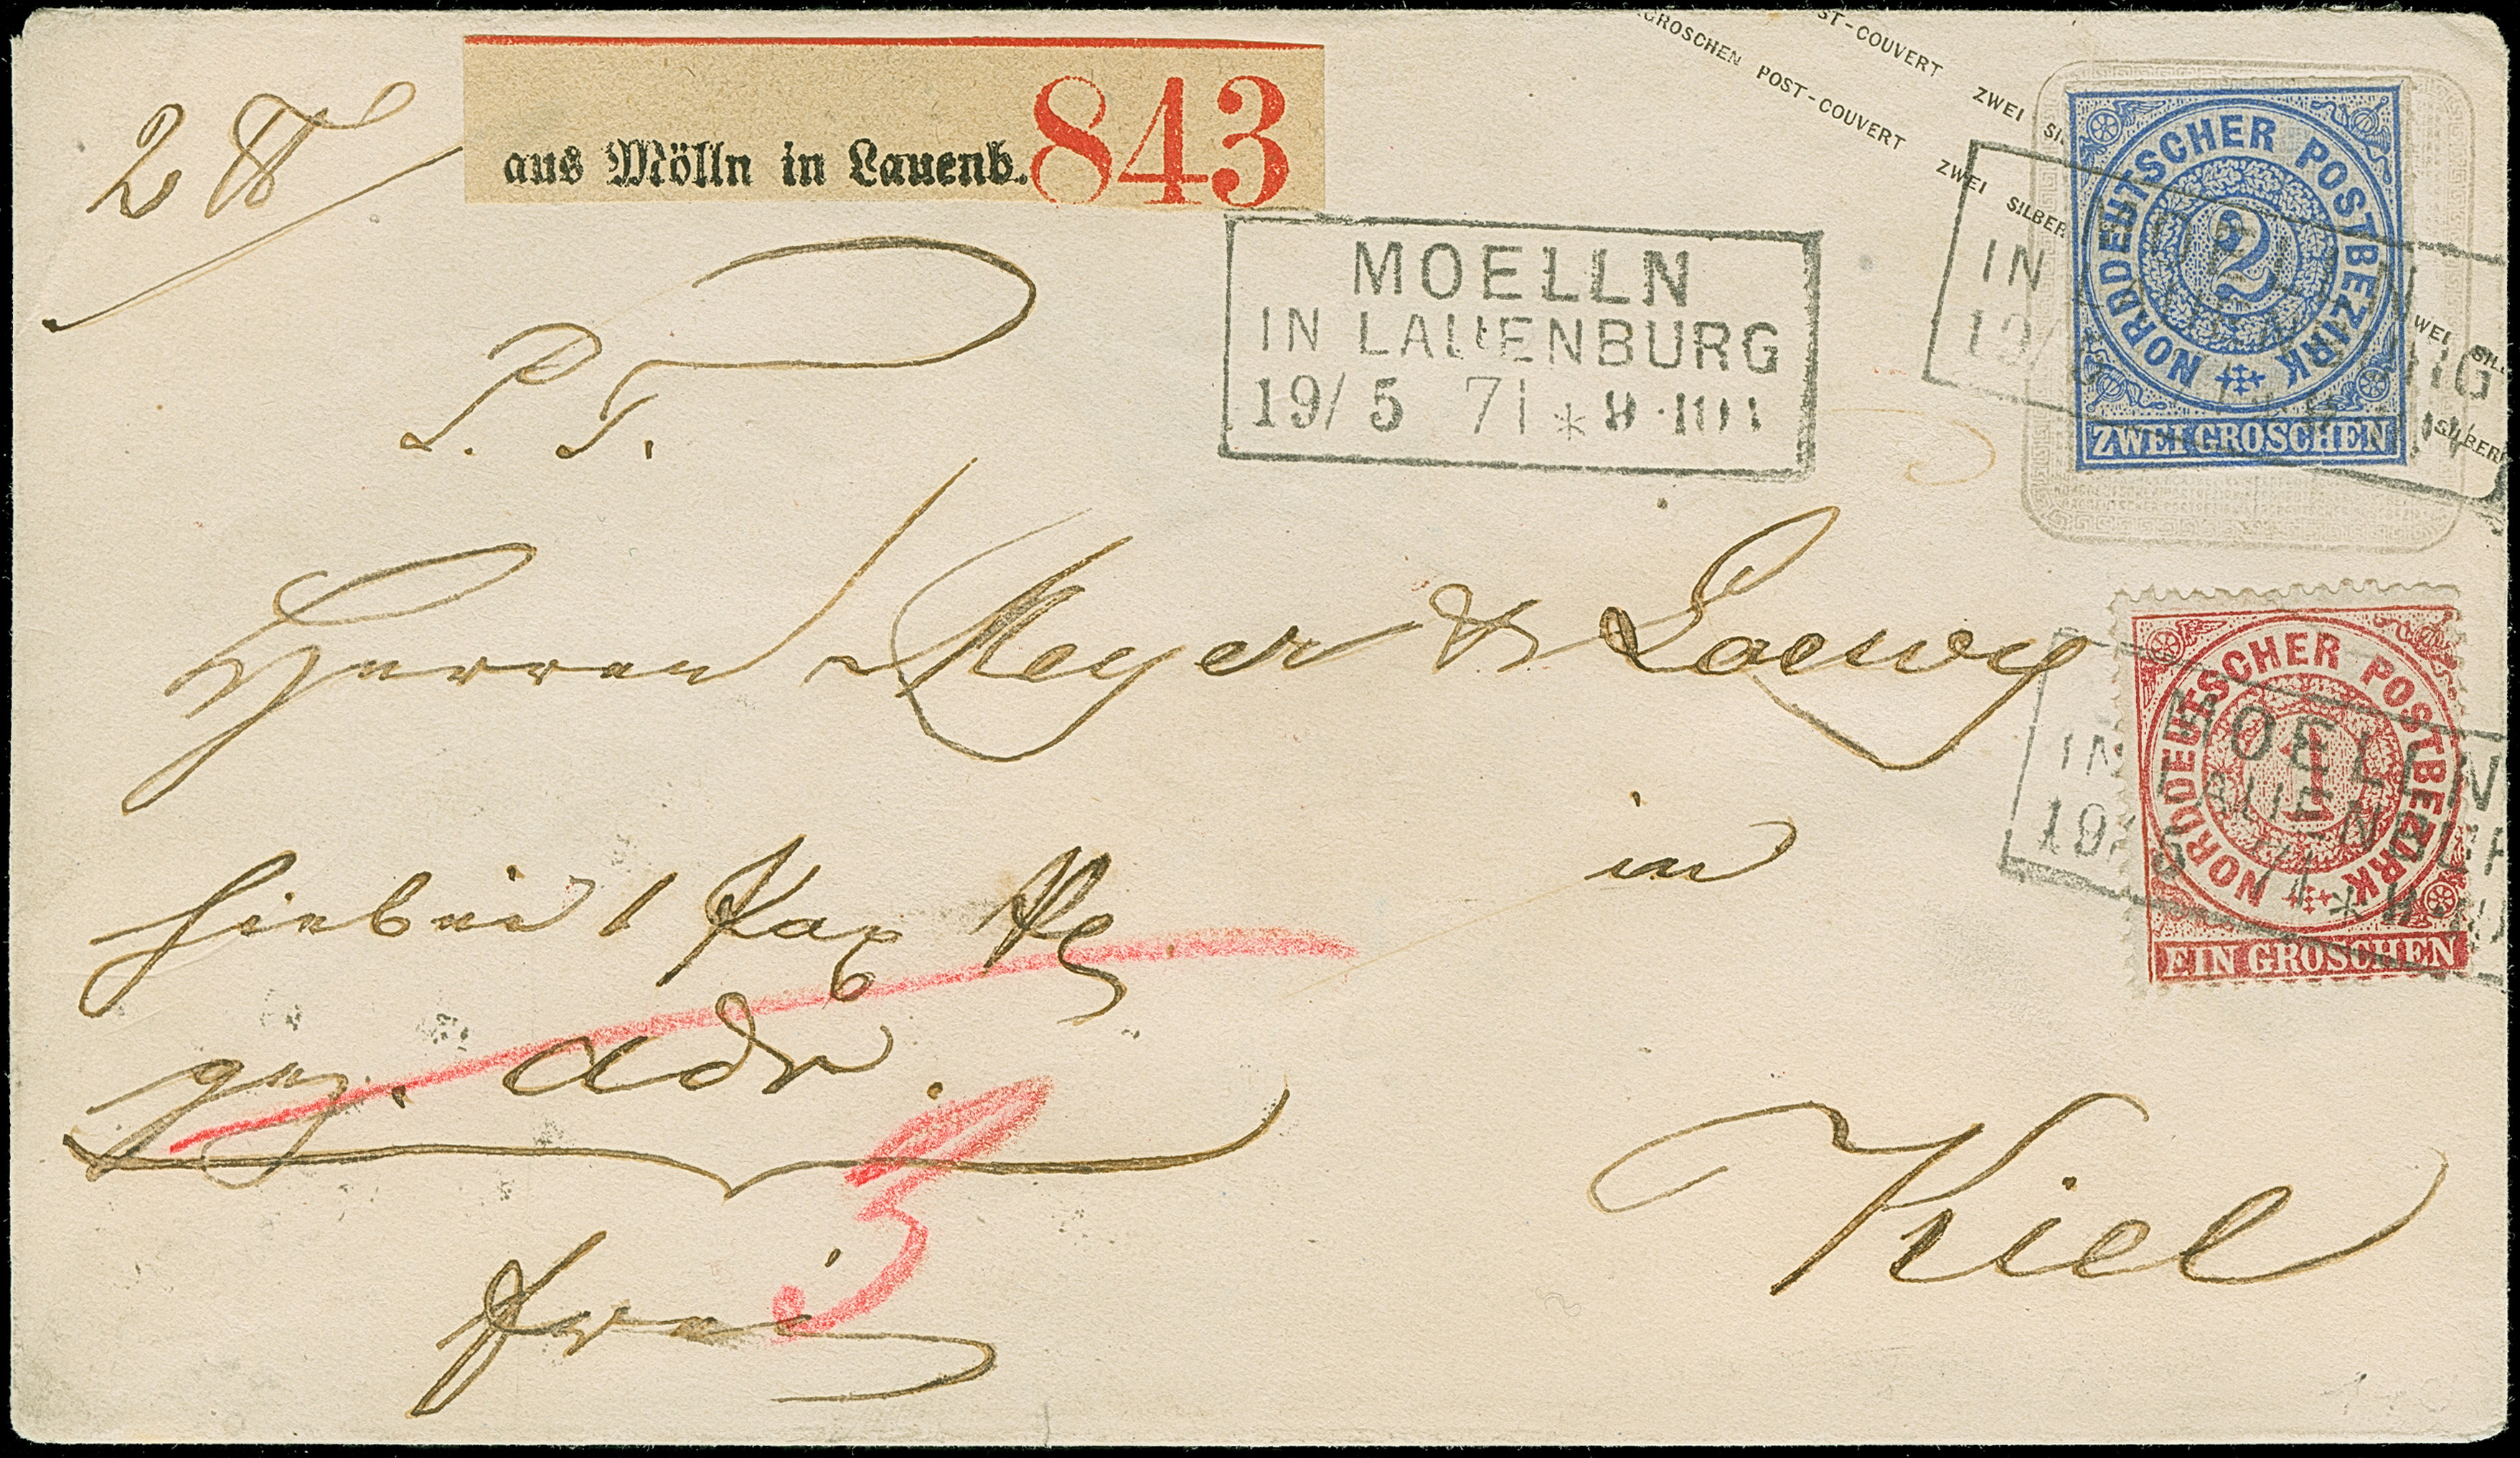 2 ℔
aus Mölln in Lauenb. 843
GROSCHEN POST-COUVERT ZWEI SILBER
ST-COUVERT ZWEI SI
WEI SIL
SILBER
NORDDEUTSCHER POSTBEZIRK
2
ZWEI GROSCHEN
IN
19/5
MOELLN
IN LAUENBURG
19/5 71 *
P. T.
Herren Meyer & Loewy
in
NORDDEUTSCHER POSTBEZIRK
1
EIN GROSCHEN
MOELLN
IN LAUENBUR
19/5 71 *
hierbei 1
gez. Adr.
3
Kiel
frei